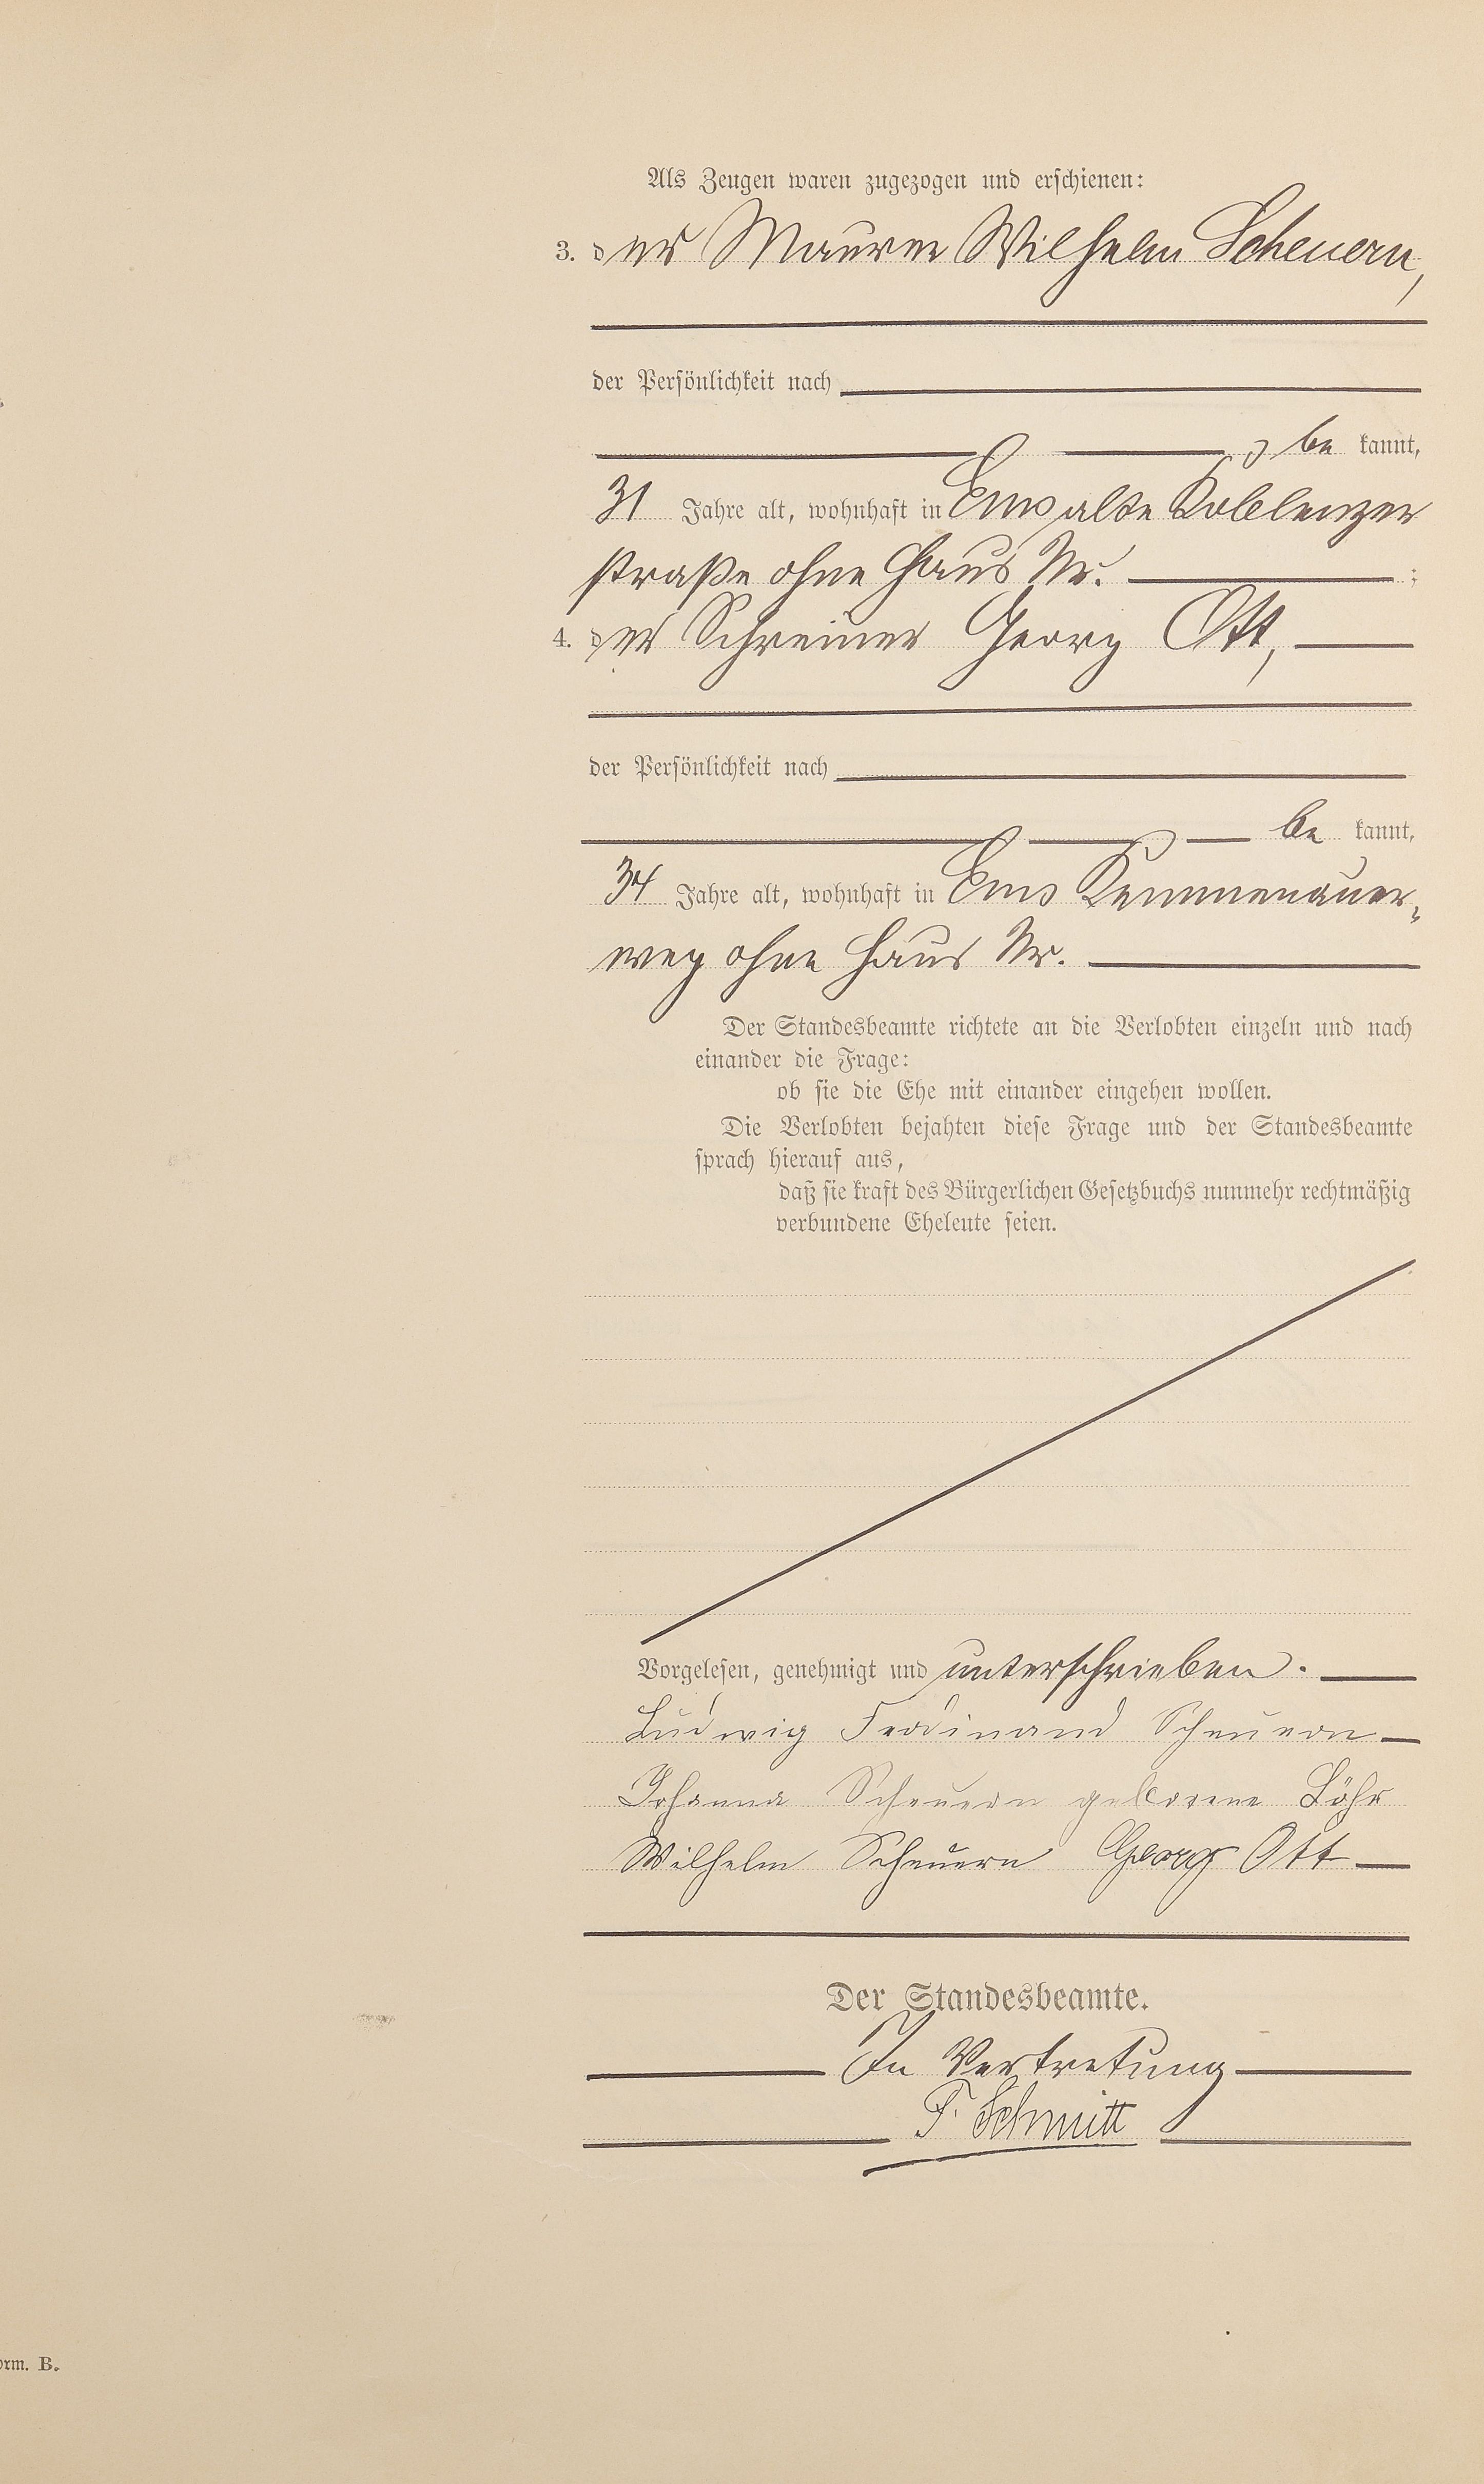 Als Zeugen waren zugezogen und erschienen:
3. der Maurer Wilhelm Scheuern,
der Persönlichkeit nach
be kannt,
31 Jahre alt, wohnhaft in Ems alte Koblenzer
straße ohne Haus Nr. ;
4. der Schreiner Georg Ott,
der Persönlichkeit nach
be kannt,
34 Jahre alt, wohnhaft in Ems Kemmenauer-
weg ohne Haus Nr.
Der Standesbeamte richtete an die Verlobten einzeln und nach
einander die Frage:
ob sie die Ehe mit einander eingehen wollen.
Die Verlobten bejahten diese Frage und der Standesbeamte
sprach hierauf aus,
daß sie kraft des Bürgerlichen Gesetzbuchs nunmehr rechtmäßig
verbundene Eheleute seien.
Vorgelesen, genehmigt und unterschrieben.
Ludwig Ferdinand Scheuern
Johanna Scheuern geborene Löhr
Wilhelm Scheuern Georg Ott
Der Standesbeamte.
In Vertretung
F. Schmitt
orm. B.